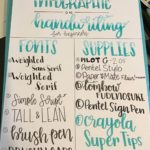 INFOGRAPHIC
on
handwriting
for beginners
FONTS
weighted
Sans
weighted
Serif
Simple Script
TALL & LEAN
brush pen
SUPPLIES
PILOT G-2.05
Pentel Stylo
Paper Mate
Tombow
Pentel Sign Pen
crayola
Super Tips